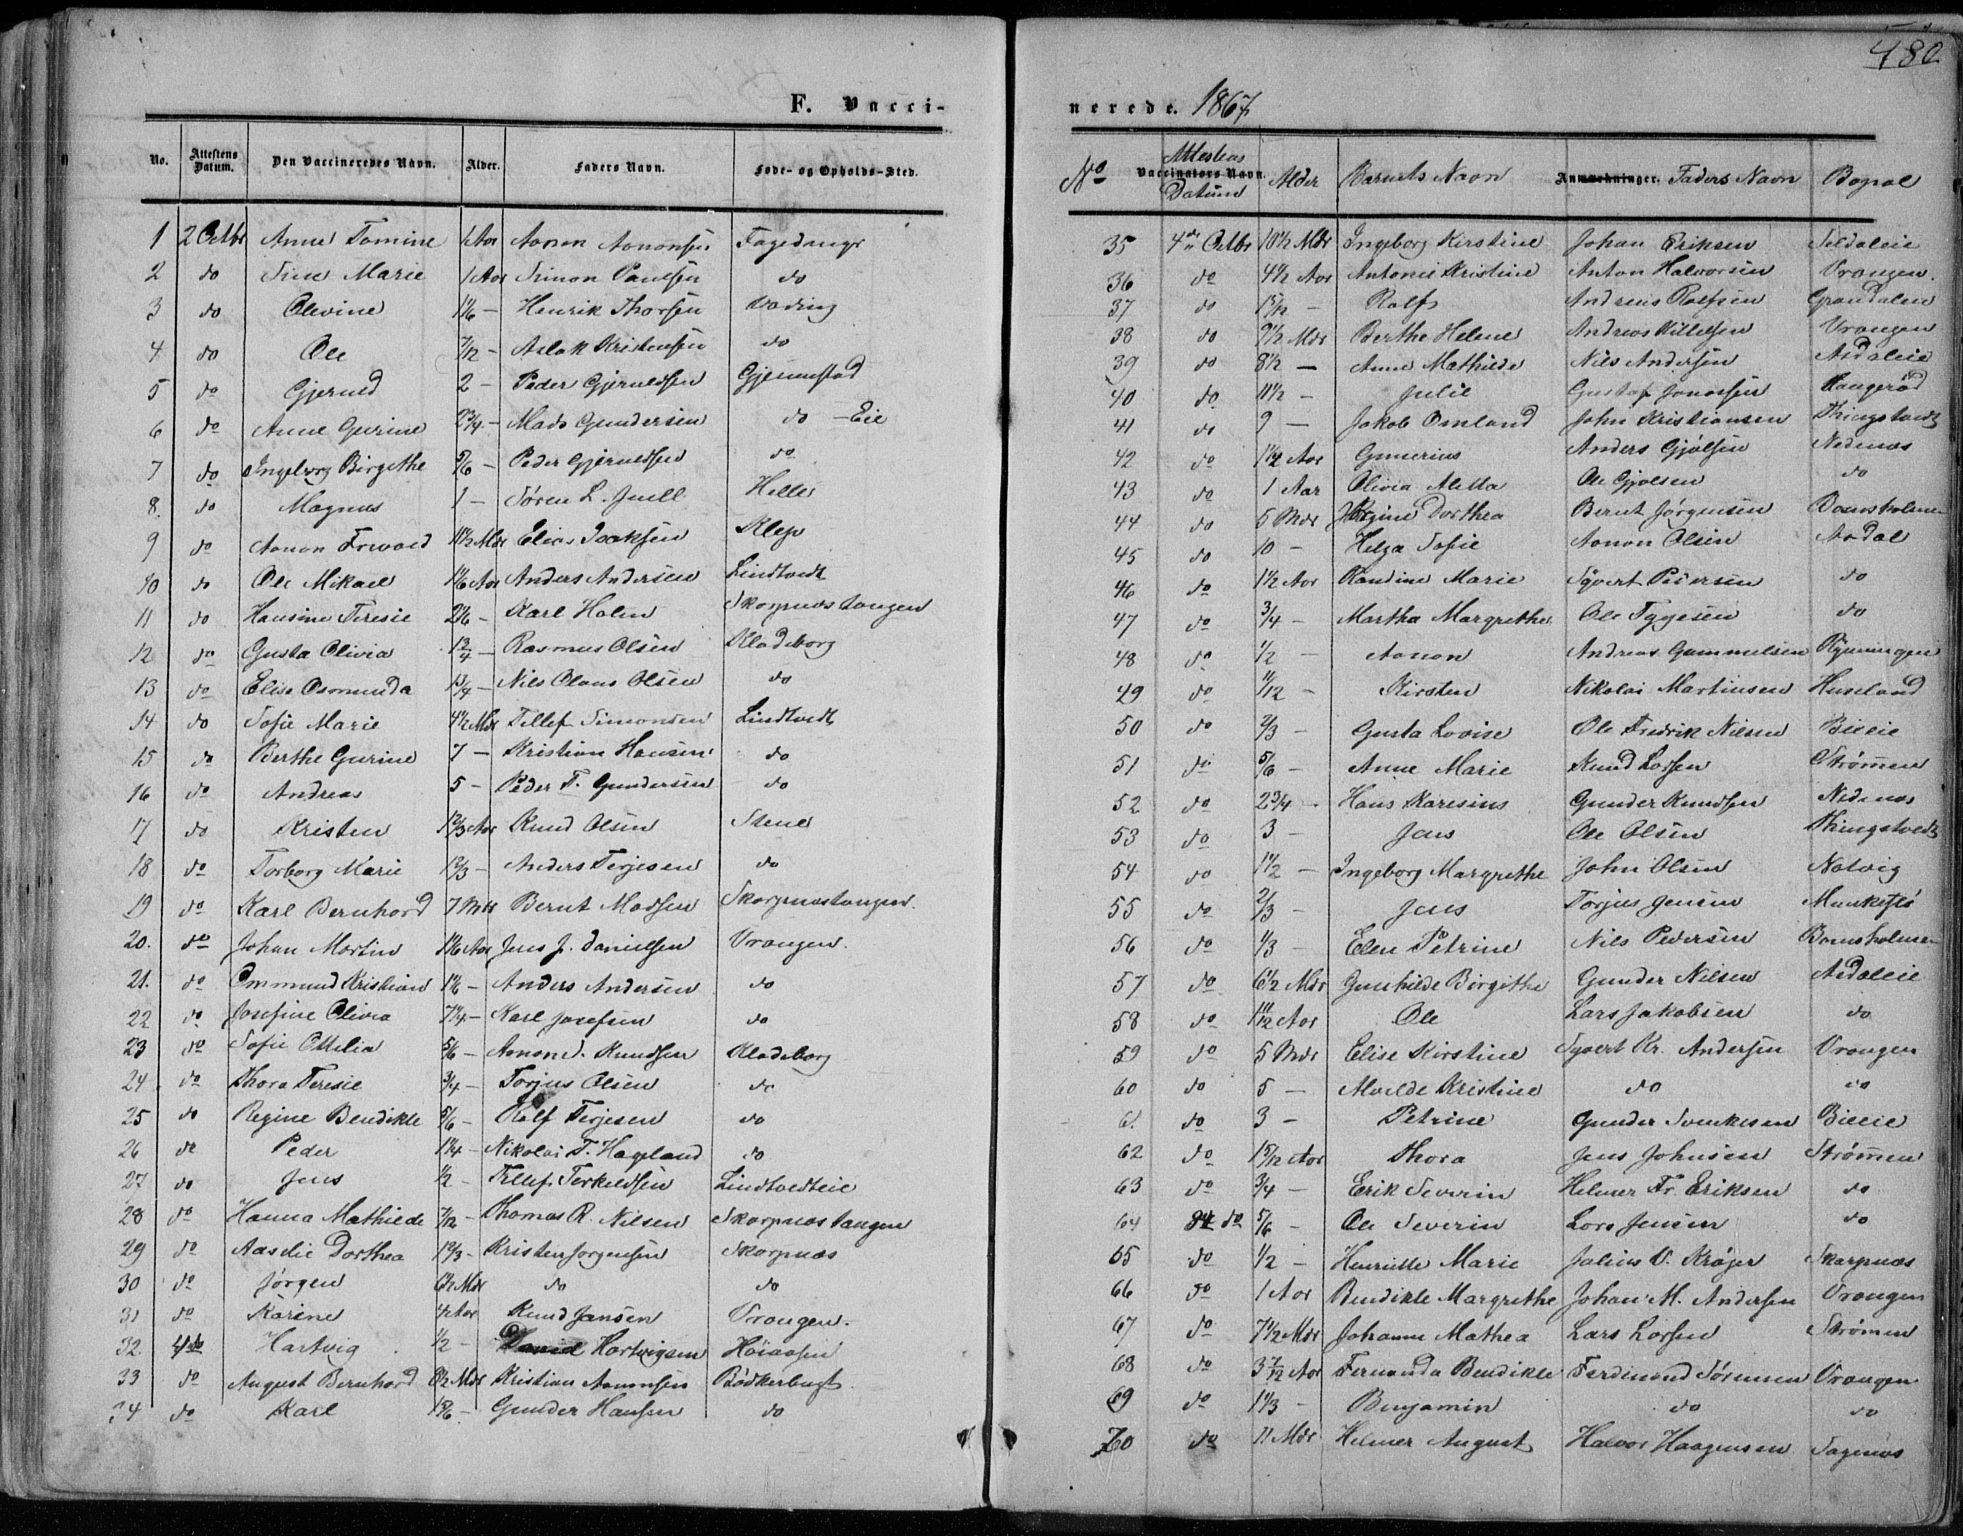 480
F. Vacci-
No. Attestens Datum. Den Vaccineredes Navn. Alder. Faders Navn. Føde- og Opholds-Sted.
1 2 Octbr Anne Tomine 1 Aar Aanon Aanonsen
2 do Marie 1 Aar Simon Paulsen do
3 do Olevine 1 1/6 — Henrik Thorsen
4 do Ole 7/12 — Aslak Kristensen do
5 do Gjerul d 2 — Peder Gjeruldsen Gjennestad
6 do Anne Gurine 2 3/4 — Mads Gundersen do — Eie
7 do Ingeborg Birgithe 5/6 — Peder Gjeruldsen do
8. do Magnus 1 — Søren L. Juell Helle
9 do Aanon 11 1/2 Mdr Elias Isaksen Klep
10 do Ole Mikael 1 1/6 Aar Anders Andersen Lindtvedt
11 do Hansine Teresie 2 1/6 — Karl Holm Skarpnæstangen
12 do Gusta Olivia 1 3/4 — Rasmus Olsen Kladeborg
13 do Elise Osmunda Nils Olaus Olsen do
14 do Sofie Marie 4 1/2 Mdr Tellef Simonsen Lindtvedt
15 do Berthe Gurine 7 — Kristian Hansen do
16 do Andreas 5 — Peder T. Gundersen do
17 do Kristen 1 2/3 Aar Knud Olsen Stene
18 do Torborg Marie 1 2/3 — Anders Terjesen do
19 do Karl Bernhard 7 Mdr Bernt Madsen Skarpnæstangen.
20. do Johan Martin 1 1/6 Aar Jens J. Danielsen Vrangen.
21. do Ommund Kristian 1 1/6 — Anders Andersen do
22 do Josefine Olivia 7 1/4 — Karl Josefsen do
23 do Sofie Ottilia 5/6 — Aanon Knudsen Kladeborg
24 do Thora Teresie 3/4 — Torjus Olsen do
25 do Regine Bendikte 5/6 — Rolf Terjesen do
26 do Peder 1 1/4 — Nikolai T. Hageland do
27 do Jens 1/2 — Tellef Terkeldsen Lindtvedteie
28 do Hanna Mathilde 7/12 — Thomas R. Nilsen Skarpnæstangen
29 do Aaselie Dorthea 1 2/3 — Kristen Jørgensen Skarpnæs
30 do Jørgen 6 1/2 Mdr do do
31 do Karine 1/2 Aar Knud Jansen Vrangen.
32 4de Hartvig 1/2 — Hartvigsen
33 do August Bernhard 8 1/2 Mdr Kristian Aanonsen Bødkerbugt
34 do Karl 1 5/6 — Gunder Hansen do
nerede. 1867
No Vaccinators Navn. Attestens Datum Alder Barnets Navn Anmærkninger. Faders Navn Bopæl
35 4de Octbr 10 1/2 Mdr Ingeborg Kirstine Johan Eriksen
36 do 4 1/2 Aar Antonie Kristine Anton Halvorsen Vrangen.
37 do 1 5/12 — Rolf Andreas Rolfsen Grandalen
38 do 9 1/2 Mdr Berthe Helene Andreas Vrangen
39 do 8 1/2 — Anne Mathilde Nils Andersen Asdaleie
40 do 11 1/2 — Julie Gustaf Jonassen Rangerød
41 do 9 — Jakob Omland John Kristiansen Thingstvedt
42 do 1 1/2 Aar Gunerius Anders Gjølsen Nedenæs
43 do 1 Aar Olivia Aletta Ole Gjølsen do
44 do 5 Mdr Regine Dorthea Bernt Jørgensen Damsholmen
45 do 10 — Helga Sofie Aanon Olsen Asdal
46 do 1 1/2 Aar Kandine Marie Syvert Pedersen do
47 do 3/4 — Martha Margrethe Ole Tygesen do
48 do 1/2 — Aanon Andreas Gummelsen Rynningen
49 do 11/12 — Kirsten Nikolai Martinsen Huseland
50 do 2/3 — Gusta Lovise Ole Fredrik Nilsen Bieeie
51 do 5/6 — Anne Marie Knud Larsen Strømen
52 do 2 3/4 — Hans Karesius Gunder Knudsen Nedenæs
53 do 3 — Jens Ole Olsen Thingstvedt
54 do 1 1/2 — Ingeborg Margrethe John Olsen Natvig
55 do 2/3 — Jens Torjus Jensen
56 do 1/3 — Elen Petrine Nils Pedersen Damsholmen
57 do 6 1/2 Mdr Gunhilde Birgithe Gunder Nilsen Asdaleie
58 do 1 11/12 Aar Ole Lars Jakobsen do
59 do 5 Mdr Elise Kirstine Syvert Kr. Andersen Vrangen
60 do 5 — Alvilde Kristine do do
61. do 3 — Petrine Gunder Svenkesen Bieeie
62 do 1 5/12 Aar Thora Jens Johnsen Strømen
63 do 3/4 — Erik Severin Helmer Fr. Eriksen do
64 do 5/6 — Ole Severin Lars Jensen do
65 do 1/2 — Henriette Marie Julius V. Krøger Skarpnæs
66 do 1 Aar Bendikte Margrethe Johan M. Andersen Vrangen
67 do 7 1/2 Mdr Johanne Mathea Lars Larsen Strømen
68 do 3 7/12 Aar Fernanda Bendikte Ferdinand Sørensen Vrangen
69 do 1 1/3 — Benjamin do do
70 do 11 Mdr Helmer August Halvor Haagensen Sagenæs